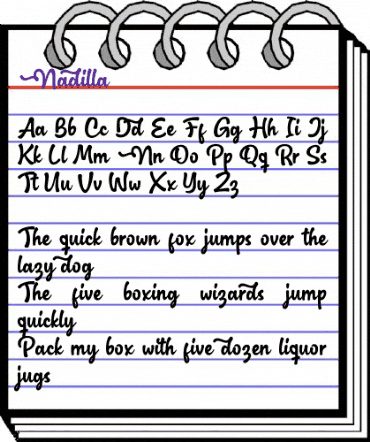 Nadilla
Aa Bb Cc Dd Ee Ff Gg Hh Ii Jj
Kk Ll Mm Nn Oo Pp Qq Rr Ss
Tt Uu Vv Ww Xx Yy Zz
The quick brown fox jumps over the
lazy dog
The five boxing wizards jump
quickly
Pack my box with five dozen liquor
jugs